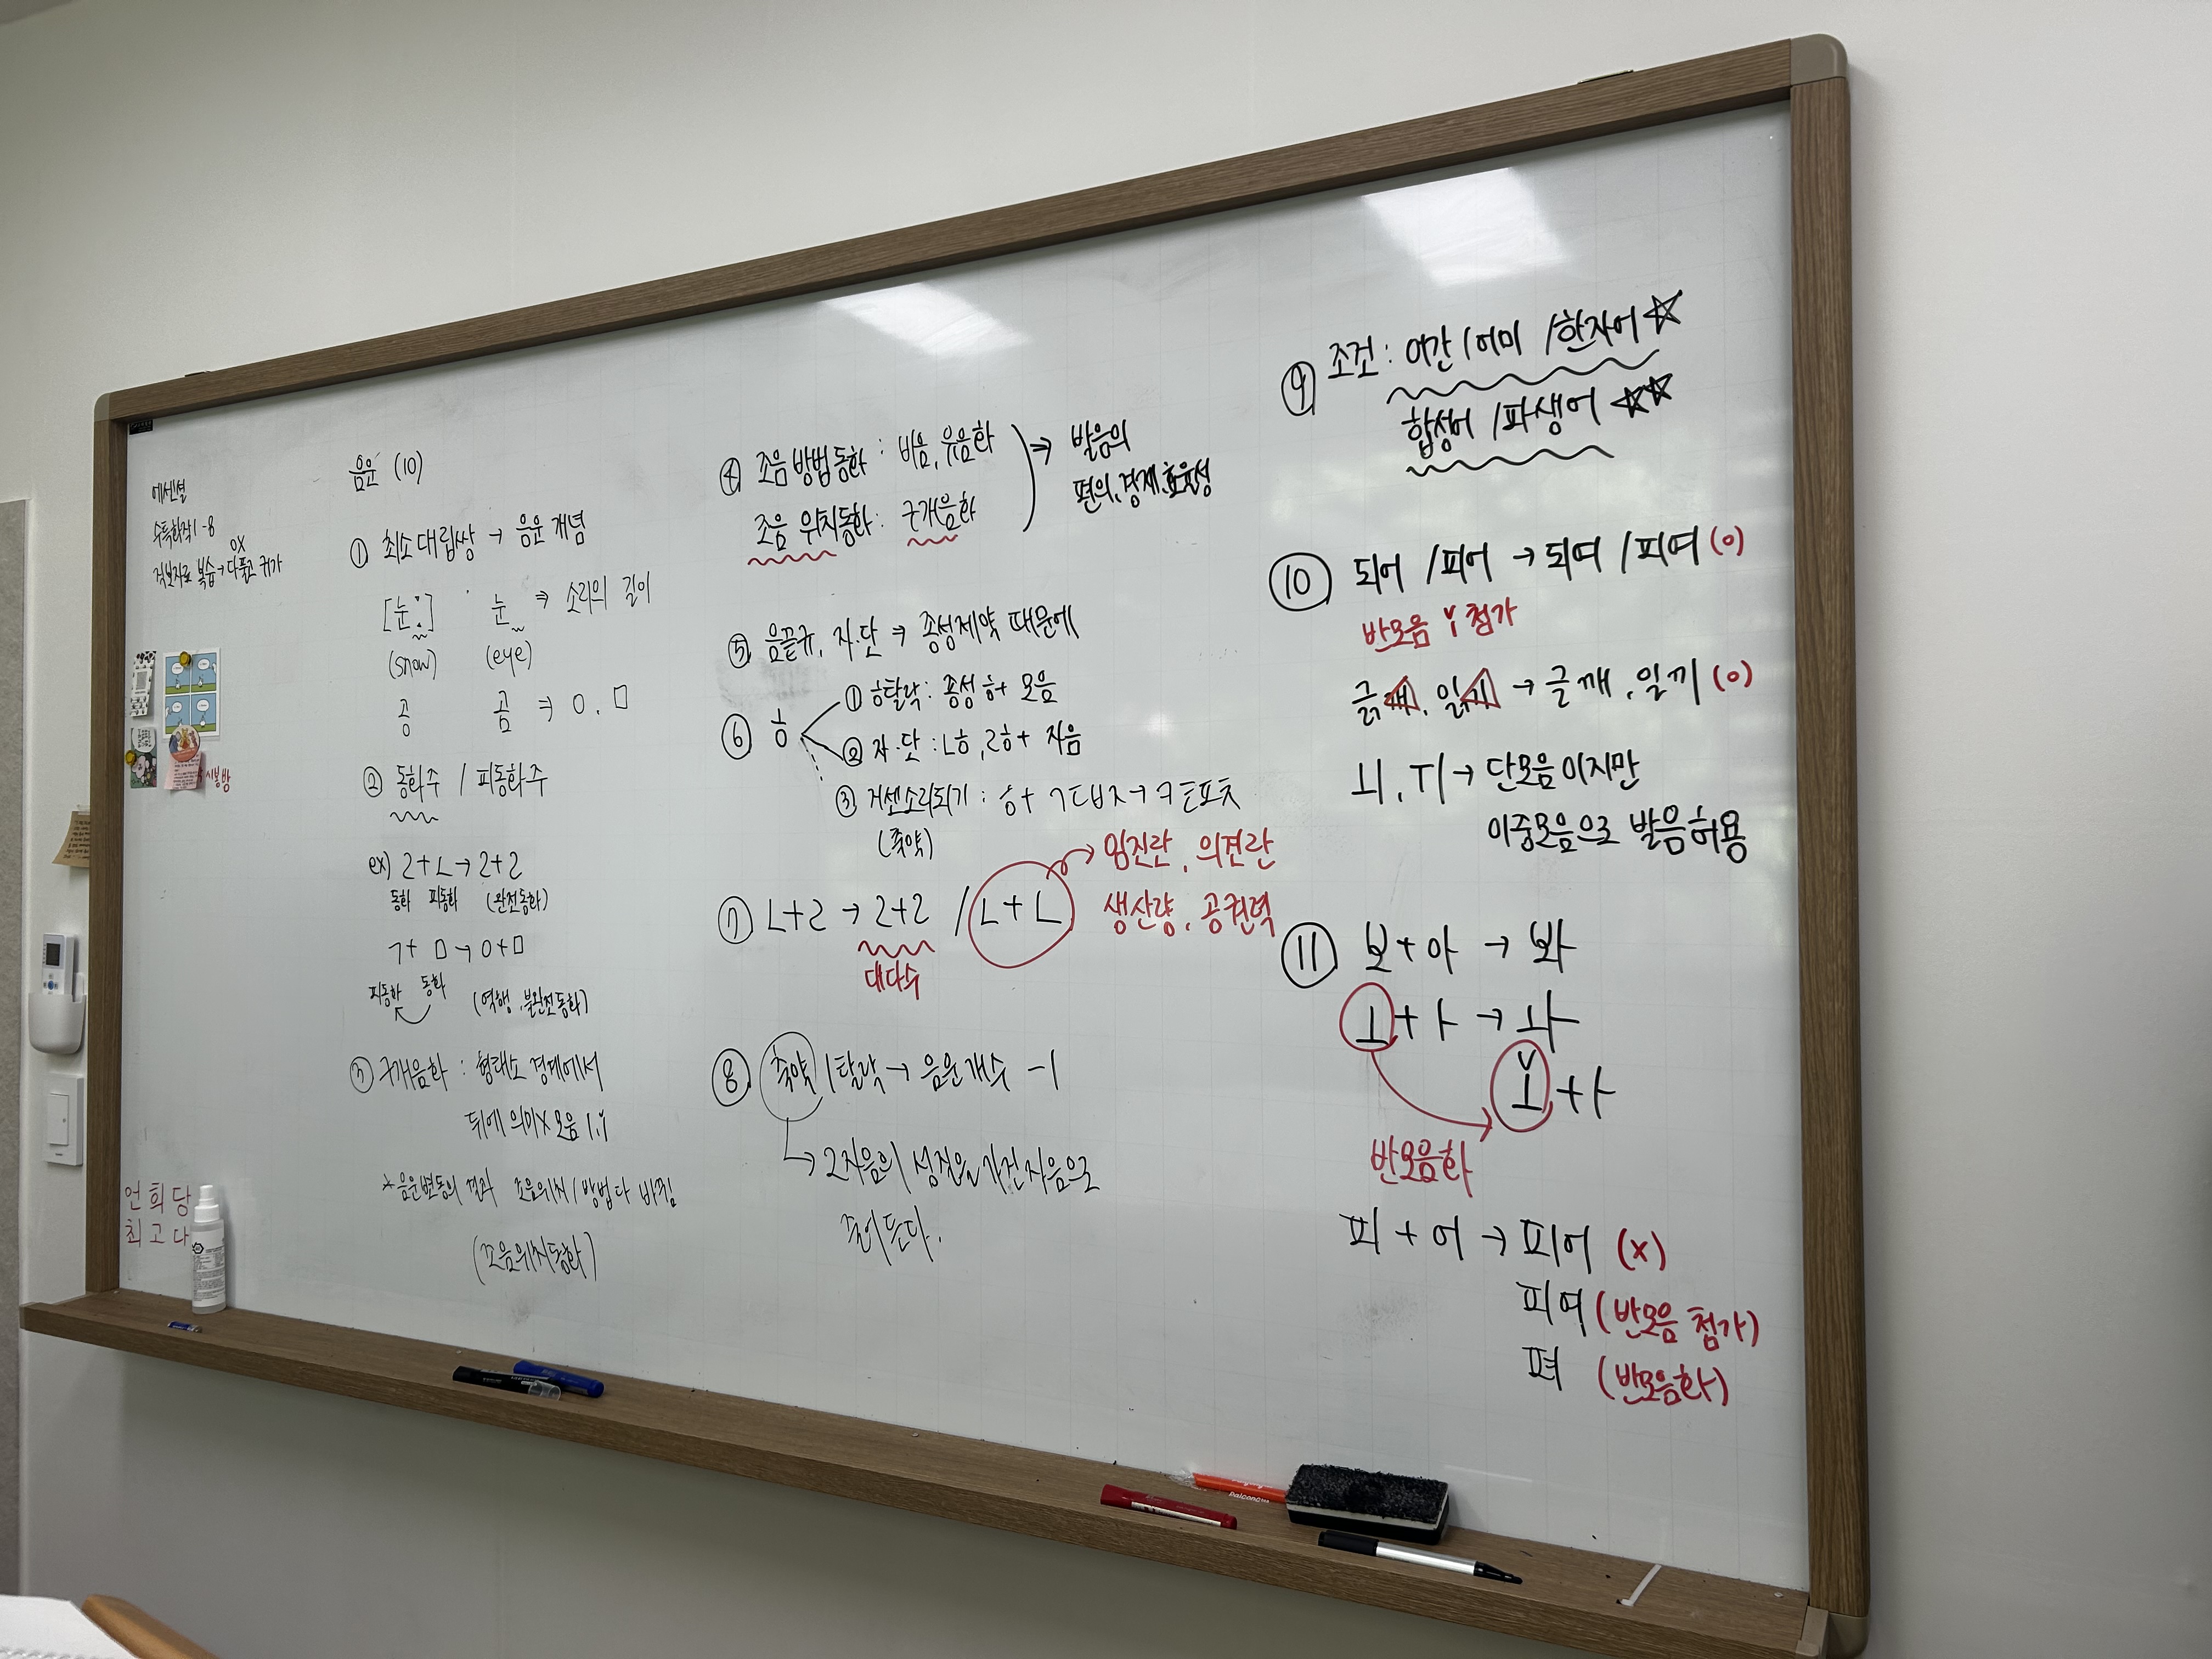 에센셜
수특화작 1-8
OX
적보자료 복습 → 다풀고 귀가
시봉방
언희당
최고다
음운 (10)
① 최소대립쌍 → 음운 개념
[눈:] 눈 ⇒ 소리의 길이
(snow) (eye)
공 곰 ⇒ ㅇ, ㅁ
② 동화주 / 피동화주
ex) ㄹ+ㄴ → ㄹ+ㄹ
동화 피동화 (완전동화)
ㄱ+ㅁ → ㅇ+ㅁ
피동화 동화 (역행, 불완전동화)
③ 구개음화 : 형태소 경계에서
뒤에 의미X 모음 ㅣ, ㅣ̆
*음운변동의 결과 조음위치/방법 다 바뀜
(조음위치동화)
④ 조음방법동화 : 비음, 유음화
조음 위치동화 : 구개음화
⇒ 발음의
편의, 경제, 효율성
⑤ 음끝규, 자·단 ⇒ 종성제약 때문에
⑥ ㅎ
① ㅎ탈락 : 종성 ㅎ+ 모음
② 자·단 : ㄶ, ㅀ + 자음
③ 거센소리되기 : ㅎ+ ㄱㄷㅂㅈ → ㅋㅌㅍㅊ
(축약)
⑦ ㄴ+ㄹ → ㄹ+ㄹ / ㄴ+ㄴ → 임진란, 의견란
생산량, 공권력
대다수
⑧ 축약/탈락 → 음운개수 -1
↳ 2자음의 성질을 가진 자음으로
줄어든다.
⑨ 조건 : 어간/어미 /한자어 ☆
합성어 /파생어 ☆☆
⑩ 되어 /피어 → 되여 /피여 (O)
반모음 ㅣ̆ 첨가
긁개, 읽기 → 글깨, 일끼 (O)
ㅚ, ㅟ → 단모음이지만
이중모음으로 발음허용
⑪ 보+아 → 봐
ㅗ+ㅏ → ㅘ
ㅗ̆+ㅏ
반모음화
피+어 → 피어 (X)
피여 (반모음 첨가)
펴 (반모음화)